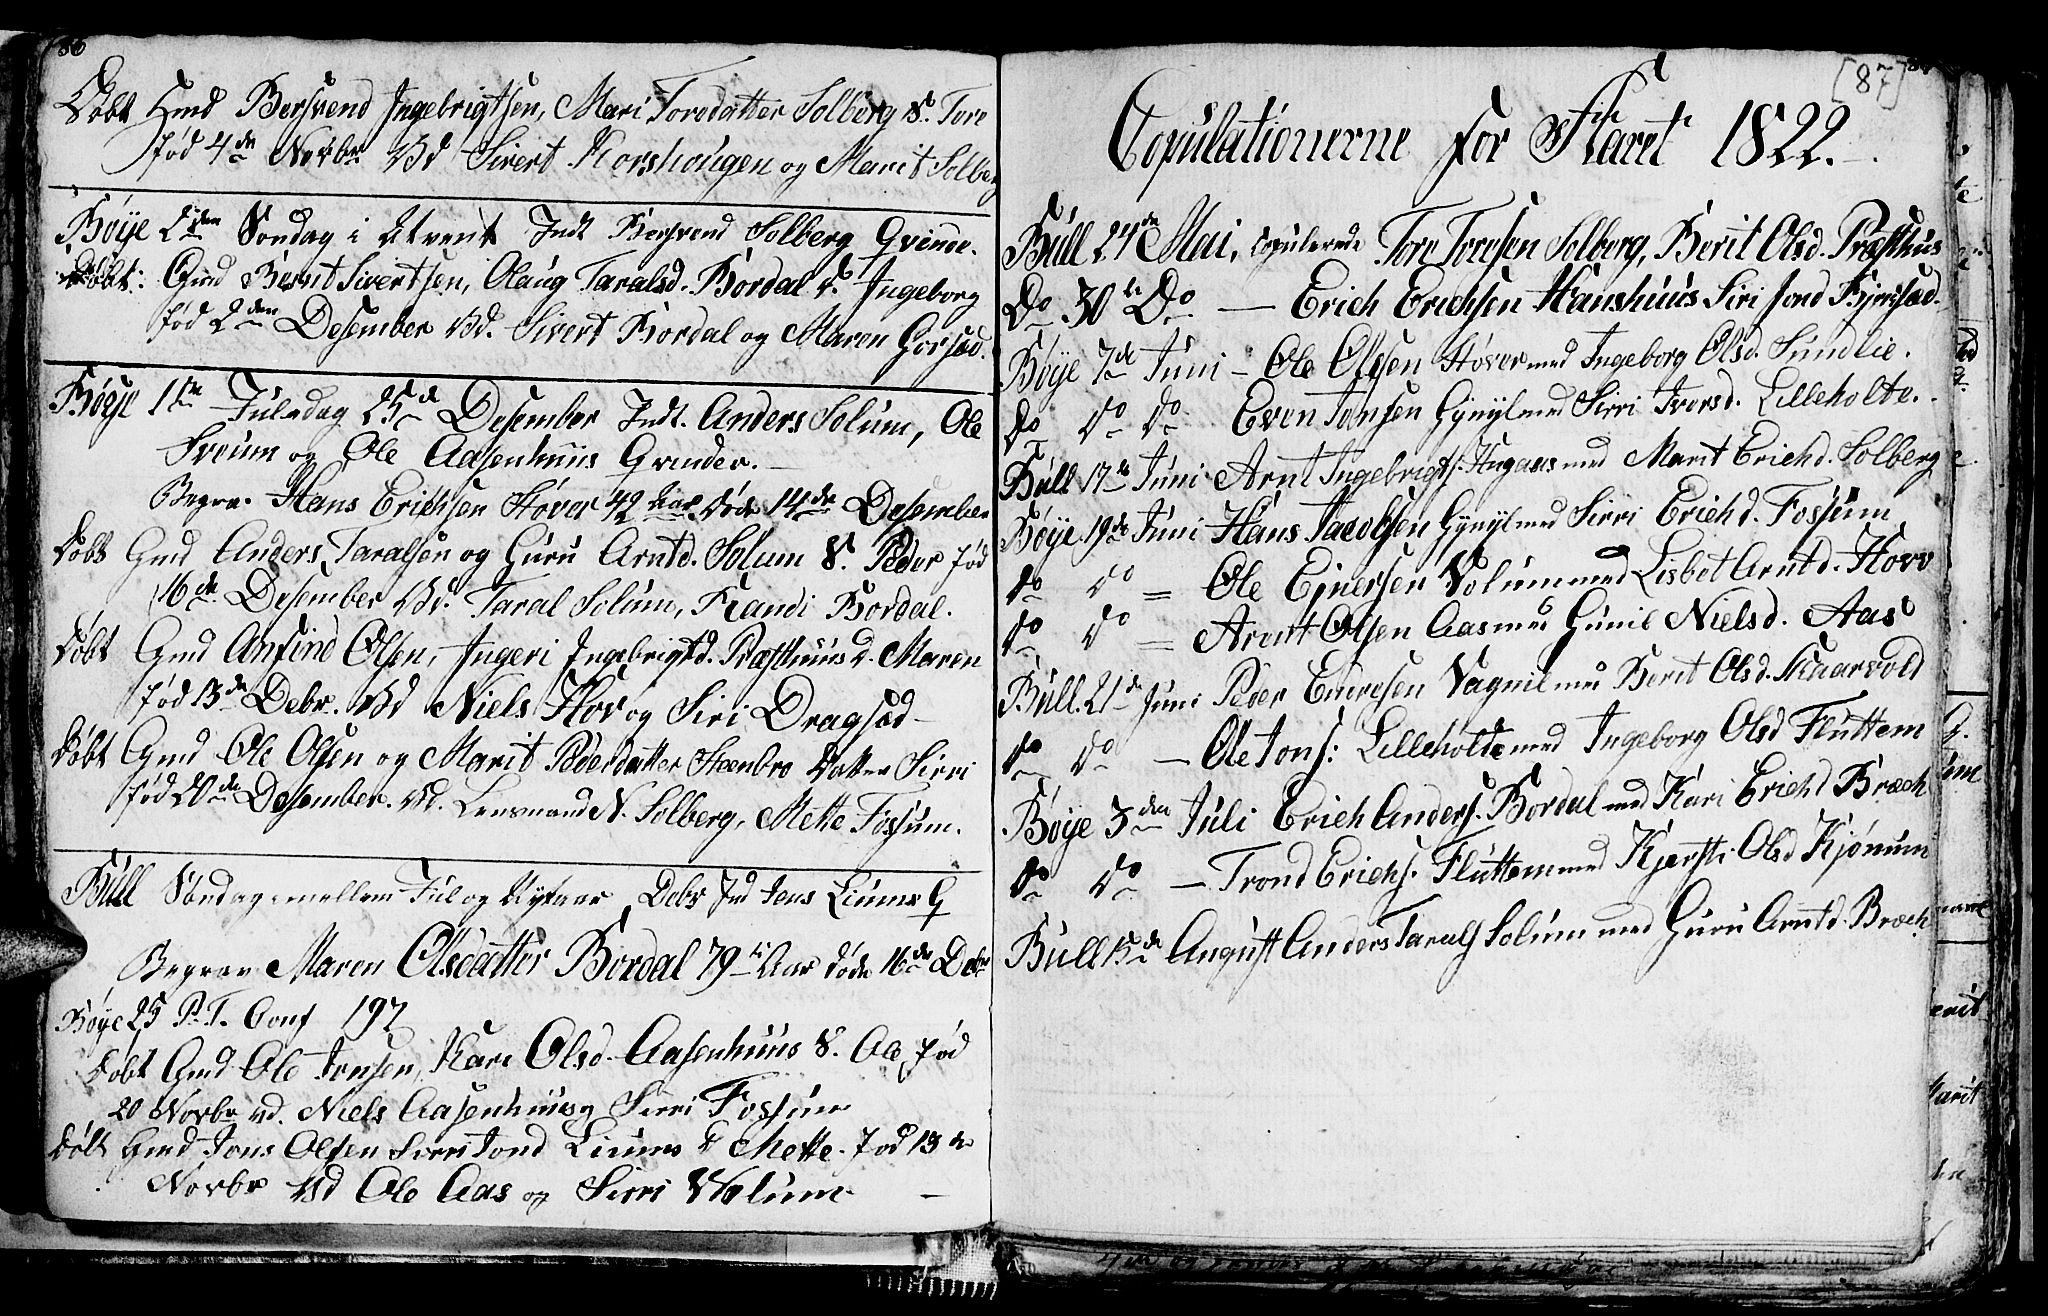 86
Døbt Gmd Bersvend Ingebrigtsen, Mari Toresdatter Solberg S. Tore
fød 4de Novbr Vd Sivert Korshougen og Marit Solberg
Bøye 2den Søndag i Atvent Indt Bersvend Solberg Qvinde.
Døbt: Gmd Bernt Sivertsen, Olaug Taralsd. Bordal d. Ingeborg
fød 2den Desember Vd. Sivert Bordal og Maren Gorsæd.
Bøye 1ste Juledag 25de Desember Indt. Anders Solum, Ole
Sveum og Ole Aasenhuus Qvinder.
Begra. Hans Erichsen Høver 42 Aar. døde 14de Desember
Døbt Gmd Anders Taralsen og Guru Arntd. Solum S. Peder fød
16de Desember Vd. Taral Solum, Randi Bordal.
Døbt Gmd Anfind Olsen, Ingeri Ingebrigtd. Præsthuus d. Maren
fød 13de Debr. Vd Niels Hov og Siri Dragsæd
Døbt Gmd Ole Olsen og Marit Pedersdatter Steenbro Datter Sirri
fød 20de Desember. Vd. Lensmand N. Solberg, Mette Fossum.
Bull Søndag emellem Jul og Nytaar, Debr Ind Jens Liums Q
Begrav Maren Olsdatter Bordal 79 Aar døde 16de Debr
Bøye 25 P. T. Conf 197
Døbt Gmd Ole Jonsen, Kari Olsd. Aasenhuus S. Ole, fød
20 Novbr vd. Niels Aasenhuus og Sirri Fossum
Døbt Gmd Jens Olsen Sirri Jond Liums d Mette. fød 13de
Novbr Vd Ole Aas og Sirri Volum
[87]
Copulationerne for Aaret 1822.
Bull 24de Mai, copulerede Tore Toresen Solberg, Berit Olsd. Præsthus
Do 30te Do — Erich Erichsen Hanshuus Siri Jond Bjerksæd
Bøye 7de Juni — Ole Olsen Høver med Ingeborg Olsd. Sundlie.
Do do do Even Jonsen Gynyl med Sirri Iversd. Lilleholte.
Bull 17de Juni Arnt Ingebrigts. Hugaas med Marit Erichd. Solberg
Bøye 19de Juni Hans Jacobsen Gynyl med Sirri Erichd. Fossum
do do = Ole Ejnersen Volum med Lisbet Arntd. Hovv
do do = Arnt Olsen Aas med Gunil Nielsd. Aas
Bull. 21de Juni Peder Enersen Vagnil med Berit Olsd. Kaarvold
do do — Ole Jons: Lilleholte med Ingeborg Olsd Fluttem
Bøye 3den Juli Erich Anders. Bordal med Kari Erichd Bræch
do do — Trond Erichs. Fluttem med Kjersti Olsd Kjønum
Bull 15de August Anders Tarals Solum med Guru Arntd. Bræch